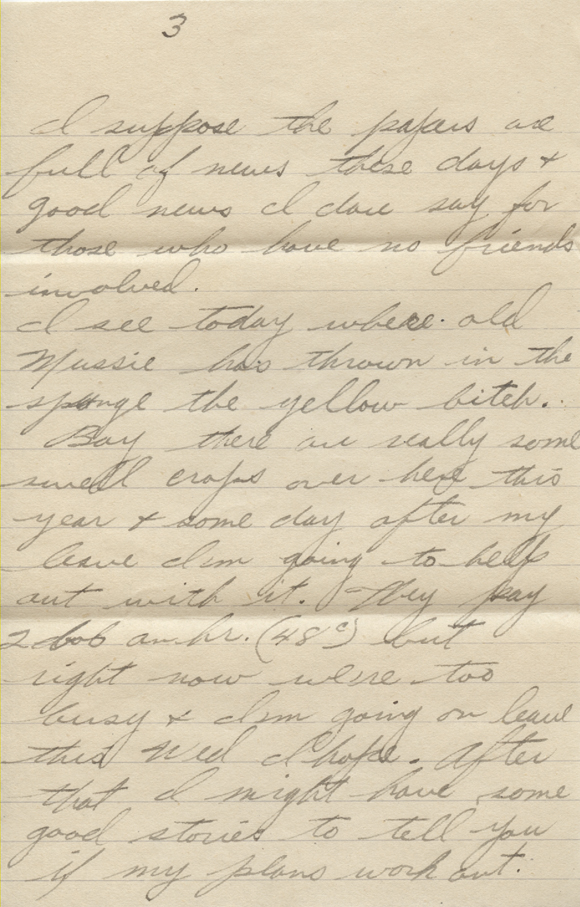 3
I suppose the papers are
full of news these days +
good news I dare say for
those who have no friends
involved.
I see today where old
Mussie has thrown in the
sponge the yellow bitch.
Boy there are really some
swell crops over here this
year + some day after my
leave I'm going to help
out with it. They pay
2 bob an hr. (48¢) but
right now we're too
busy + I'm going on leave
this Wed I hope. After
that I might have some
good stories to tell you
if my plans work out.